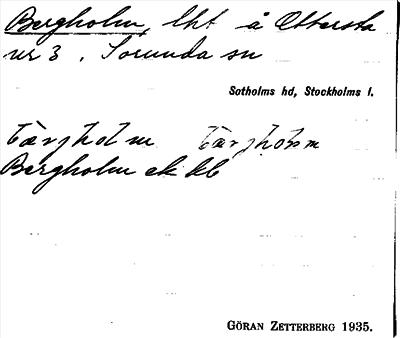 Bergholm, lht å Ottersta
nr 3, Sorunda sn
Sotholms hd, Stockholms l.
Bergholm ek kb
GÖRAN ZETTERBERG 1935.